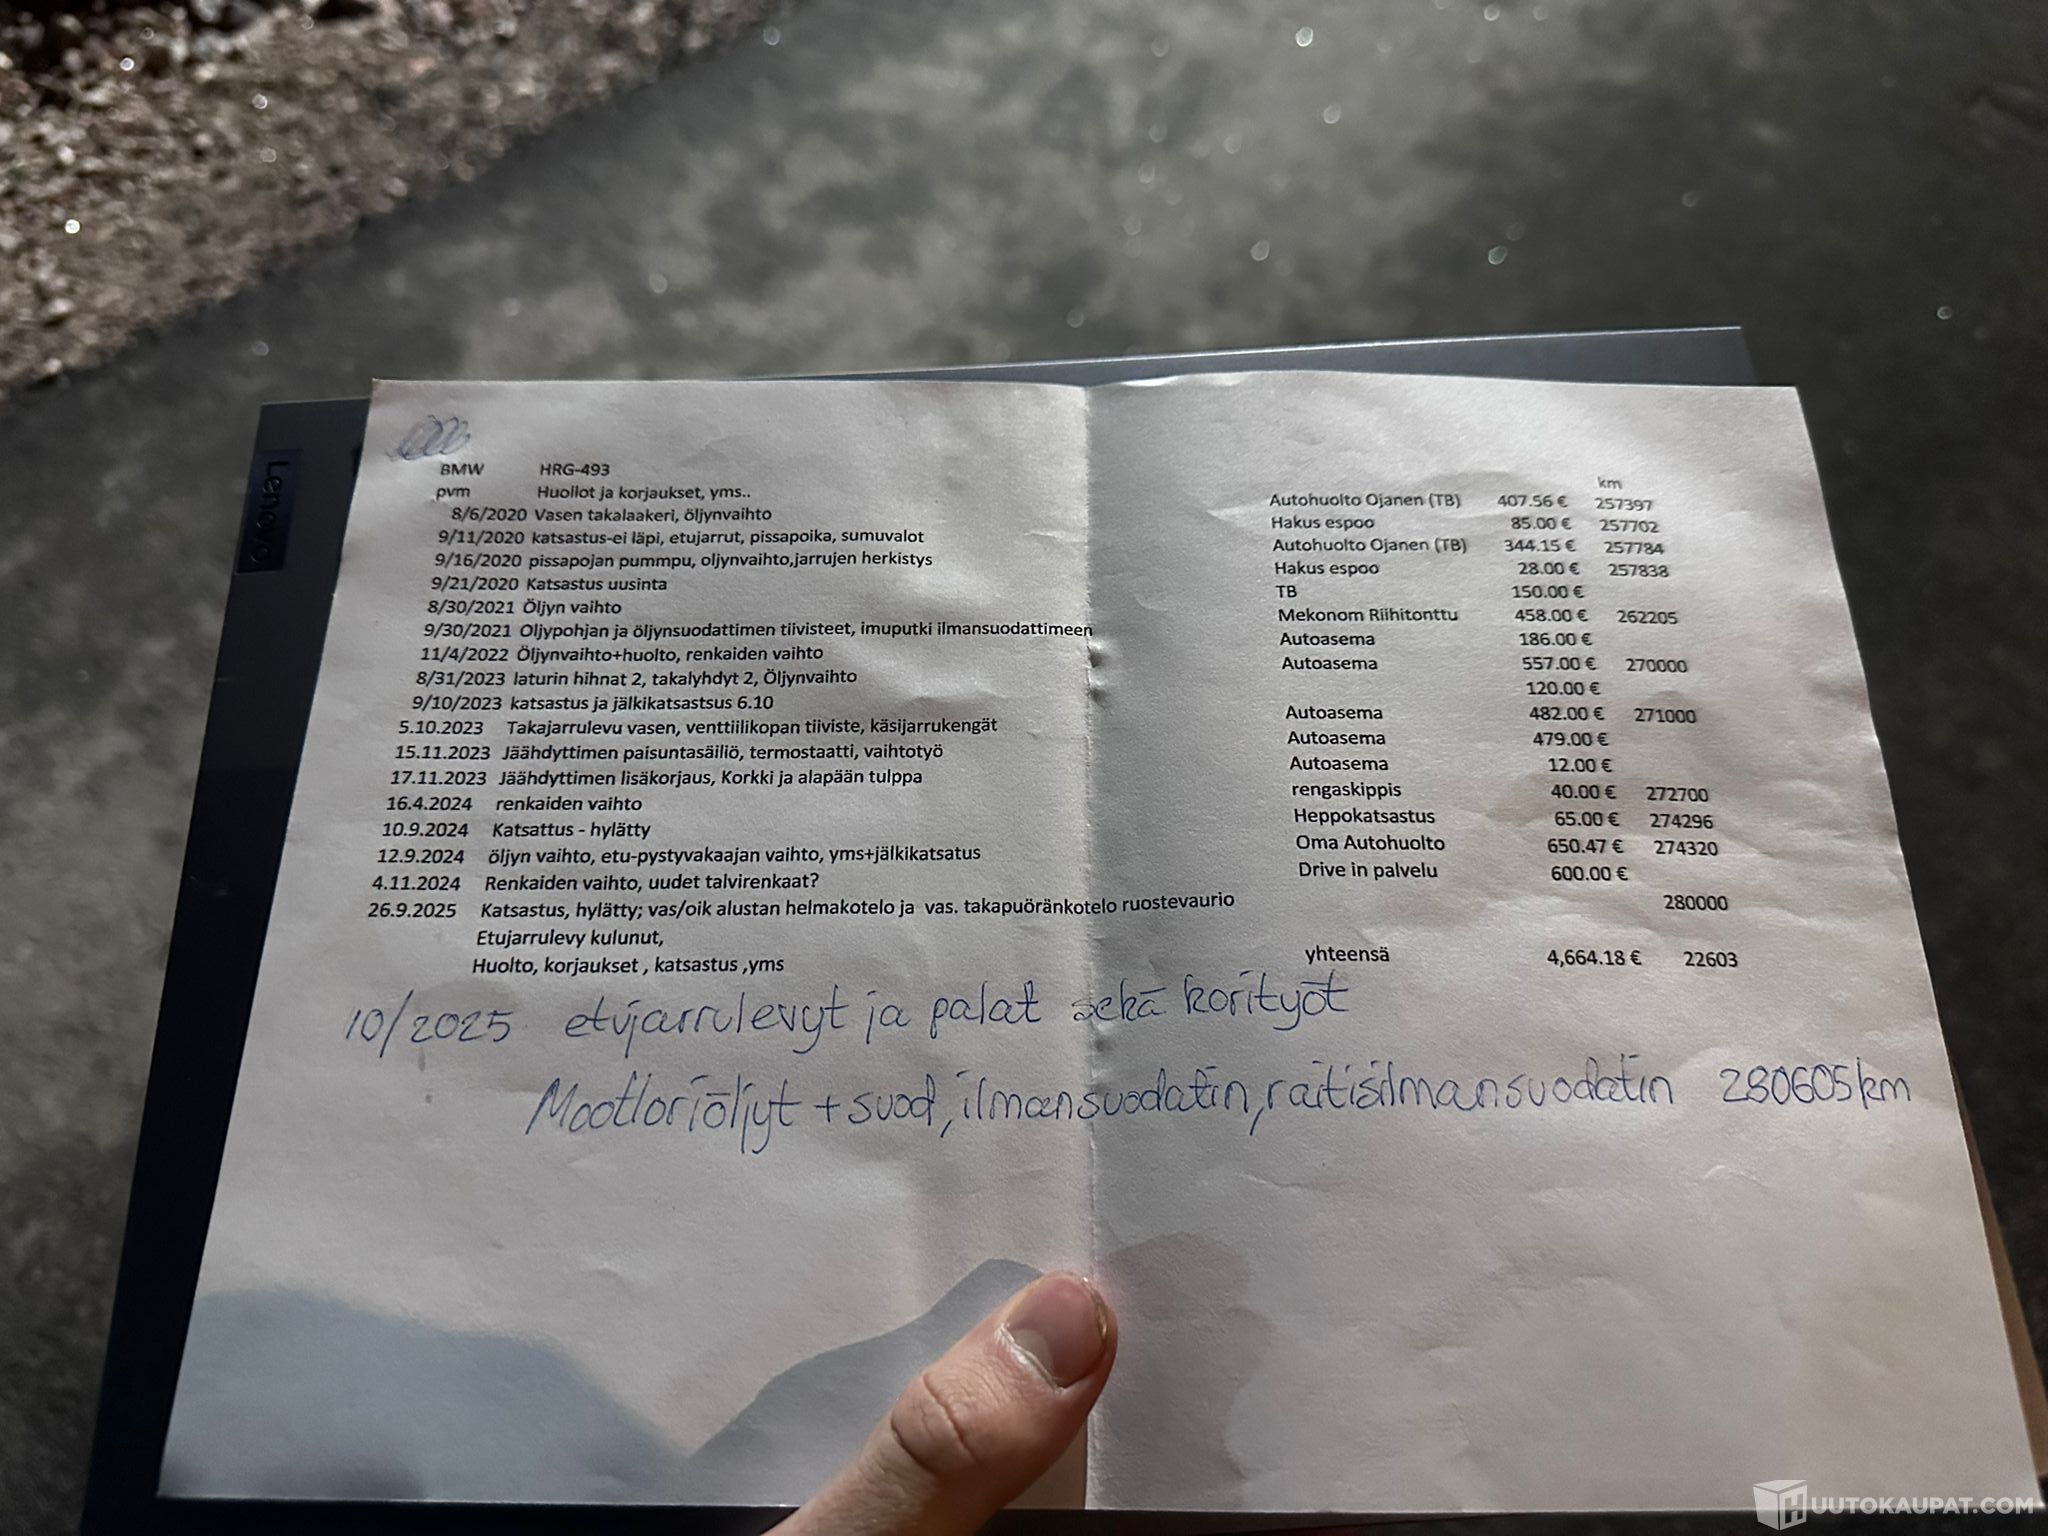 Lenovo
BMW HRG-493
pvm Huollot ja korjaukset, yms.. km
8/6/2020 Vasen takalaakeri, öljynvaihto Autohuolto Ojanen (TB) 407.56 € 257397
9/11/2020 katsastus-ei läpi, etujarrut, pissapoika, sumuvalot Hakus espoo 85.00 € 257702
9/16/2020 pissapojan pummpu, oljynvaihto,jarrujen herkistys Autohuolto Ojanen (TB) 344.15 € 257784
9/21/2020 Katsastus uusinta Hakus espoo 28.00 € 257838
8/30/2021 Öljyn vaihto TB 150.00 €
9/30/2021 Oljypohjan ja öljynsuodattimen tiivisteet, imuputki ilmansuodattimeen Mekonom Riihitonttu 458.00 € 262205
11/4/2022 Öljynvaihto+huolto, renkaiden vaihto Autoasema 186.00 €
8/31/2023 laturin hihnat 2, takalyhdyt 2, Öljynvaihto Autoasema 557.00 € 270000
9/10/2023 katsastus ja jälkikatsastsus 6.10 120.00 €
5.10.2023 Takajarrulevu vasen, venttiilikopan tiiviste, käsijarrukengät Autoasema 482.00 € 271000
15.11.2023 Jäähdyttimen paisuntasäiliö, termostaatti, vaihtotyö Autoasema 479.00 €
17.11.2023 Jäähdyttimen lisäkorjaus, Korkki ja alapään tulppa Autoasema 12.00 €
16.4.2024 renkaiden vaihto rengaskippis 40.00 € 272700
10.9.2024 Katsattus - hylätty Heppokatsastus 65.00 € 274296
12.9.2024 öljyn vaihto, etu-pystyvakaajan vaihto, yms+jälkikatsatus Oma Autohuolto 650.47 € 274320
4.11.2024 Renkaiden vaihto, uudet talvirenkaat? Drive in palvelu 600.00 €
26.9.2025 Katsastus, hylätty; vas/oik alustan helmakotelo ja vas. takapuöränkotelo ruostevaurio 280000
Etujarrulevy kulunut,
Huolto, korjaukset , katsastus ,yms yhteensä 4,664.18 € 22603
10/2025 etujarrulevyt ja palat sekä korityöt
Moottoriöljyt + suod, ilmansuodatin, raitisilmansuodatin 280605km
HUUTOKAUPAT.COM